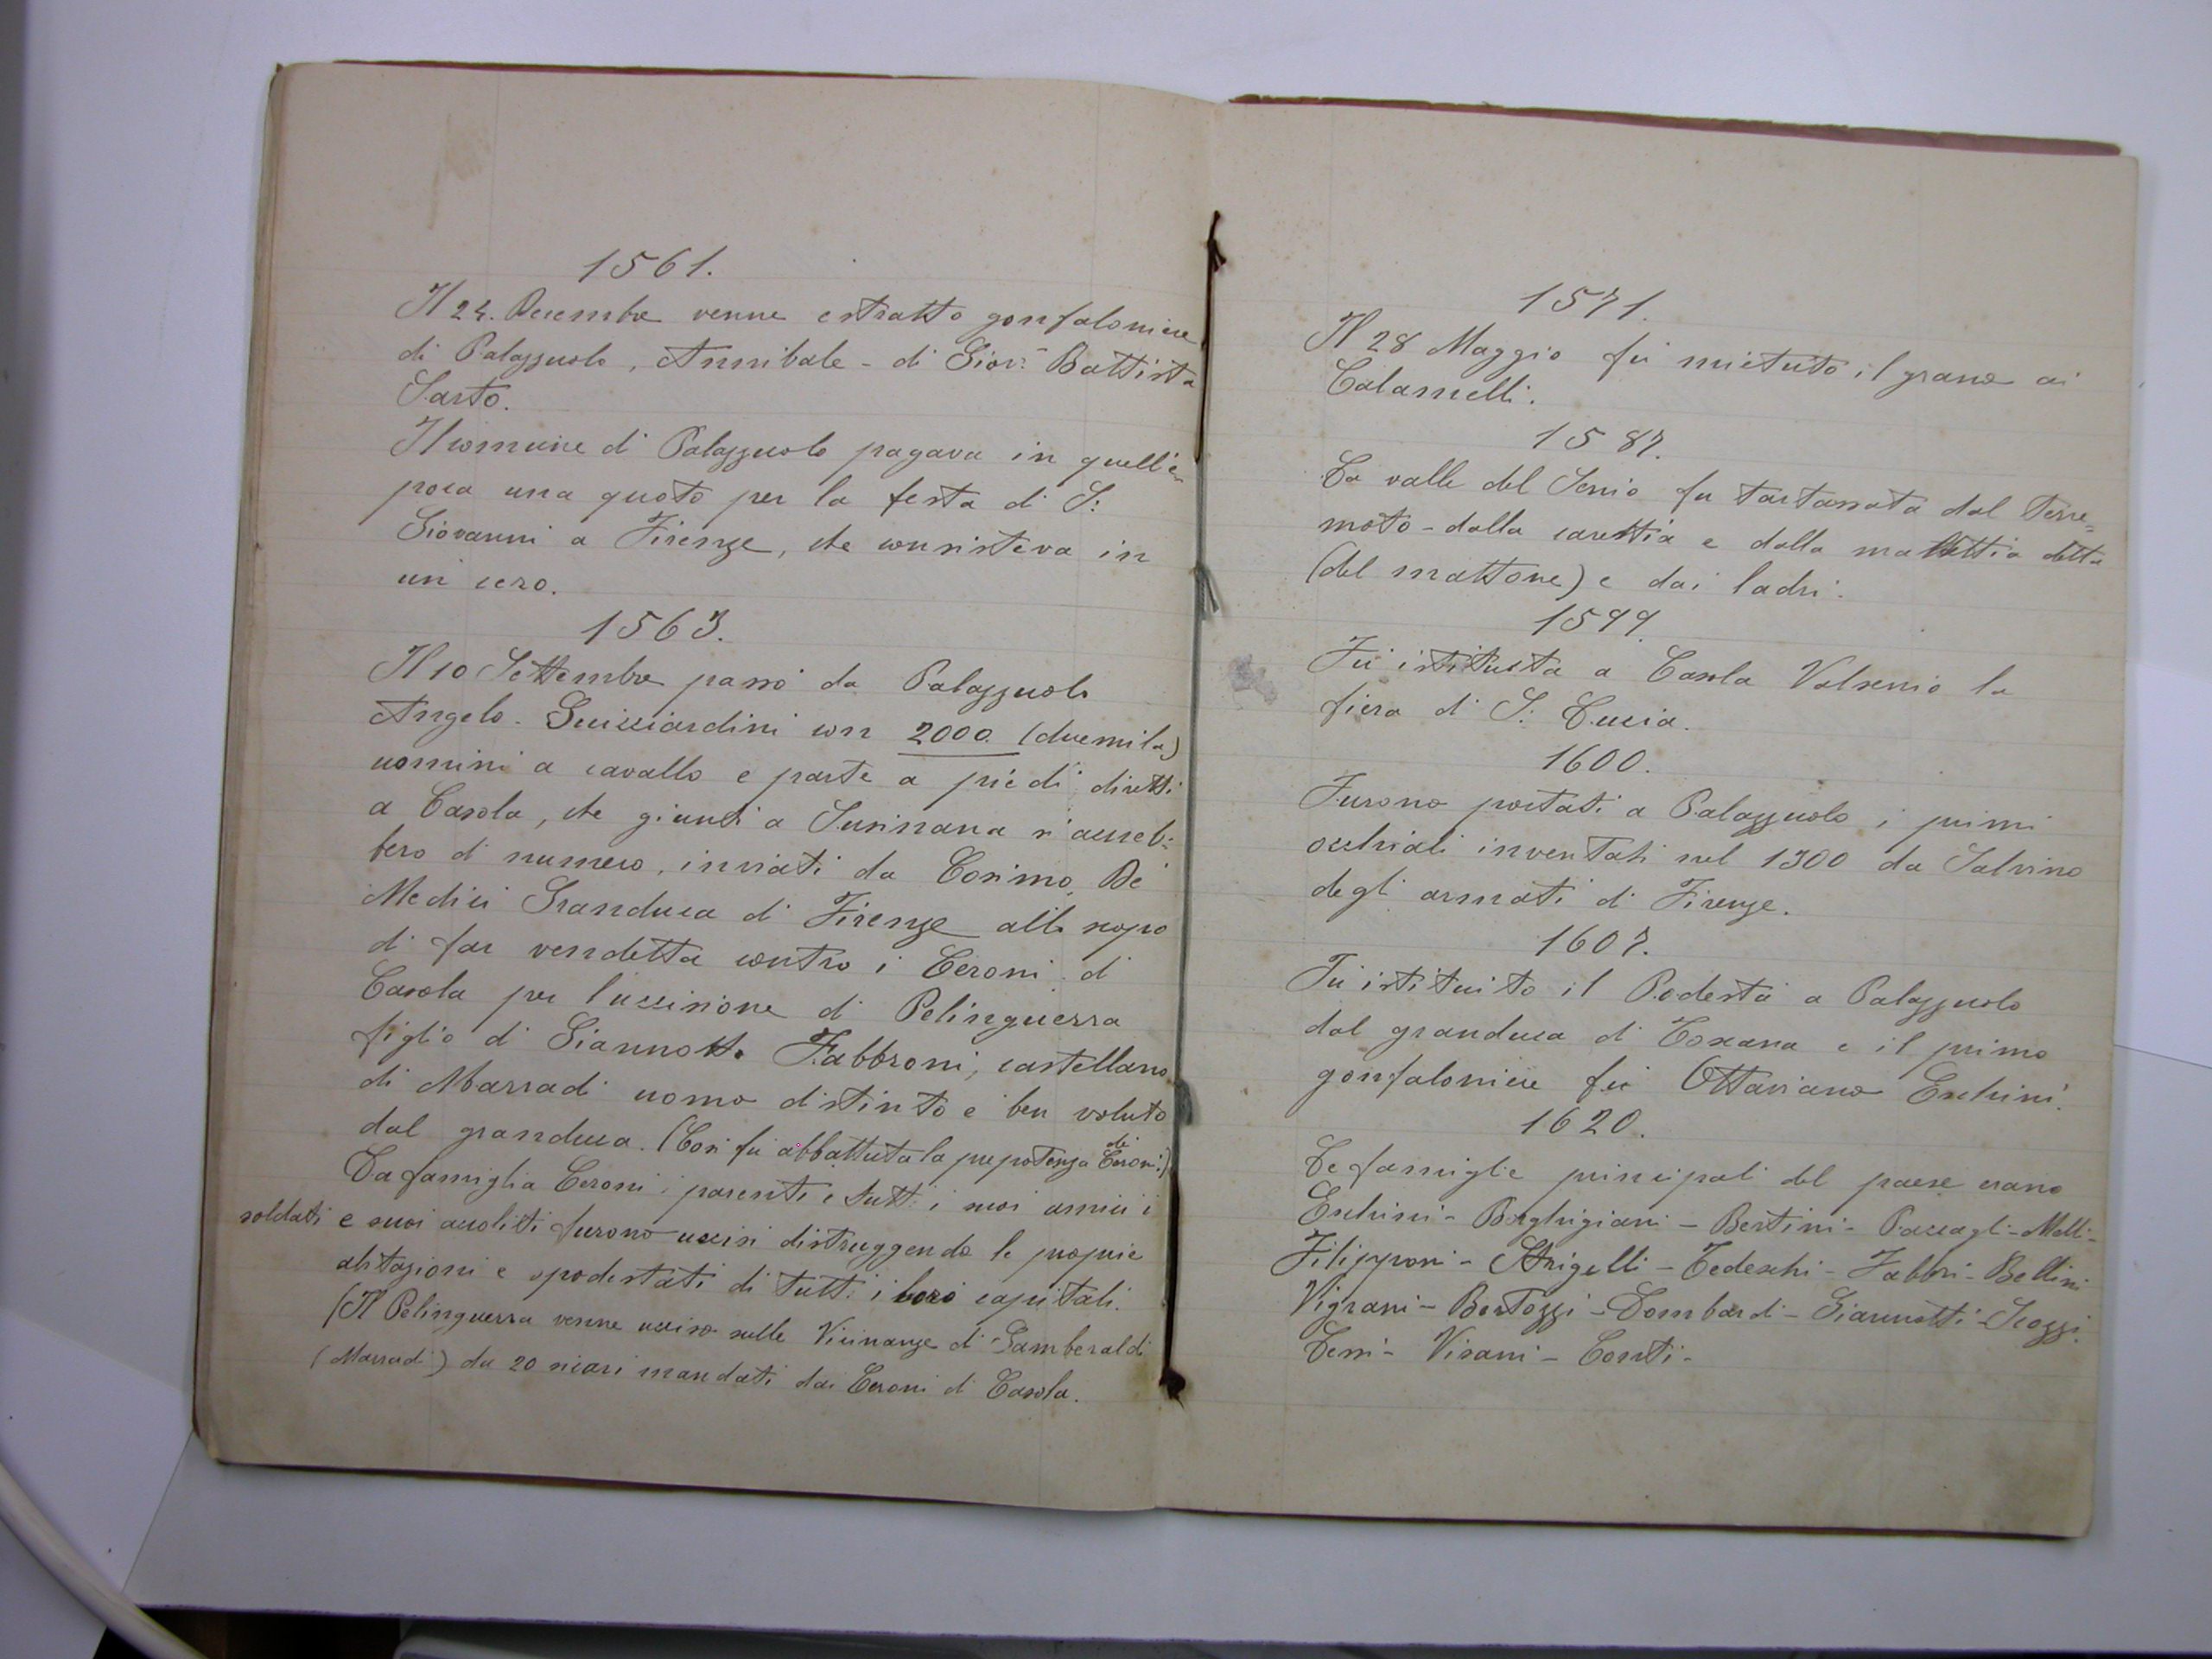 1561.
Il 24. Decembre venne estratto gonfaloniere
di Palazzuolo, Annibale - di Giov. Battista
Sarto.
Il comune di Palazzuolo pagava in quell'e
poca una quota per la festa di S.
Giovanni a Firenze, che consisteva in
un cero.
1563.
Il 10 Settembre passò da Palazzuolo
Angelo - Guicciardini con 2000 (duemila)
uomini a cavallo e parte a piedi diretti
a Casola, che giunti a Susinana s'accreb-
bero di numero, inviati da Cosimo De
Medici Granduca di Firenze allo scopo
di far vendetta contro i Ceroni di
Casola per l'uccisione di Pelinguerra
figlio di Giannotto Fabbroni, castellano
di Marradi uomo distinto e ben voluto
dal granduca. (Così fu abbattuta la prepotenza dei Ceroni.)
La famiglia Ceroni i parenti e tutti i suoi amici i
soldati e suoi accoliti furono uccisi distruggendo le proprie
abitazioni e spodestati di tutti i loro capitali.
(Il Pelinguerra venne ucciso nelle Vicinanze di Gamberaldi
(Marradi) da 20 sicari mandati dai Ceroni di Casola.
1571.
Il 28 Maggio fù mietuto il grano ai
Calamelli.
1587.
La valle del Senio fu tartassata dal Terre=
moto - dalla carestia e dalla malattia detta
(del mattone) e dai ladri.
1599.
Fù istituita a Casola Valsenio la
fiera di S. Lucia.
1600.
Furono portati a Palazzuolo i primi
occhiali inventati nel 1300 da Salvino
degli armati di Firenze.
1607.
Fù istituito il Podestà a Palazzuolo
dal granduca di Toscana e il primo
gonfaloniere fù Ottaviano Eschini.
1620.
Le famiglie principali del paese erano
Eschini - Borghigiani - Bertini - Poccagli - Melli -
Filipponi - Strigelli - Tedeschi - Fabbri - Bellini
Vignani - Bertozzi - Lombardi - Giannotti - Scozzi
Tessi - Visani - Conti -